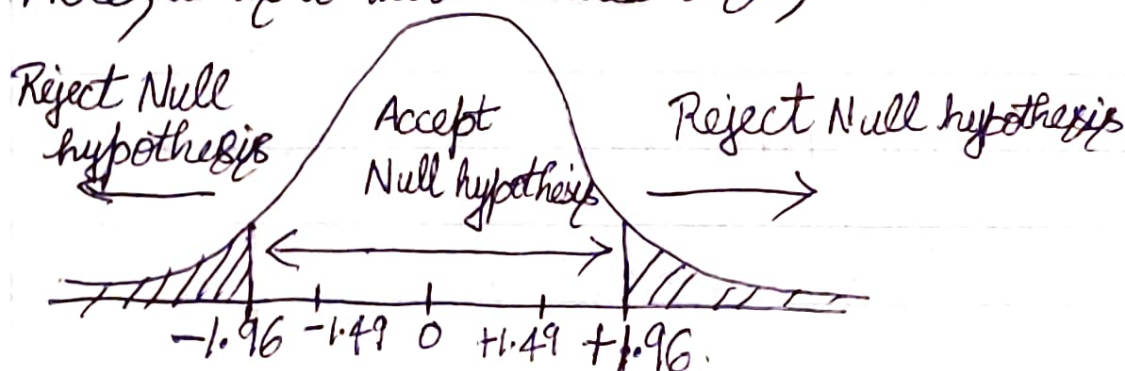 Reject Null
hypothesis
Accept
Null hypothesis
Reject Null hypothesis
-1.96 -1.49 0 +1.49 +1.96.